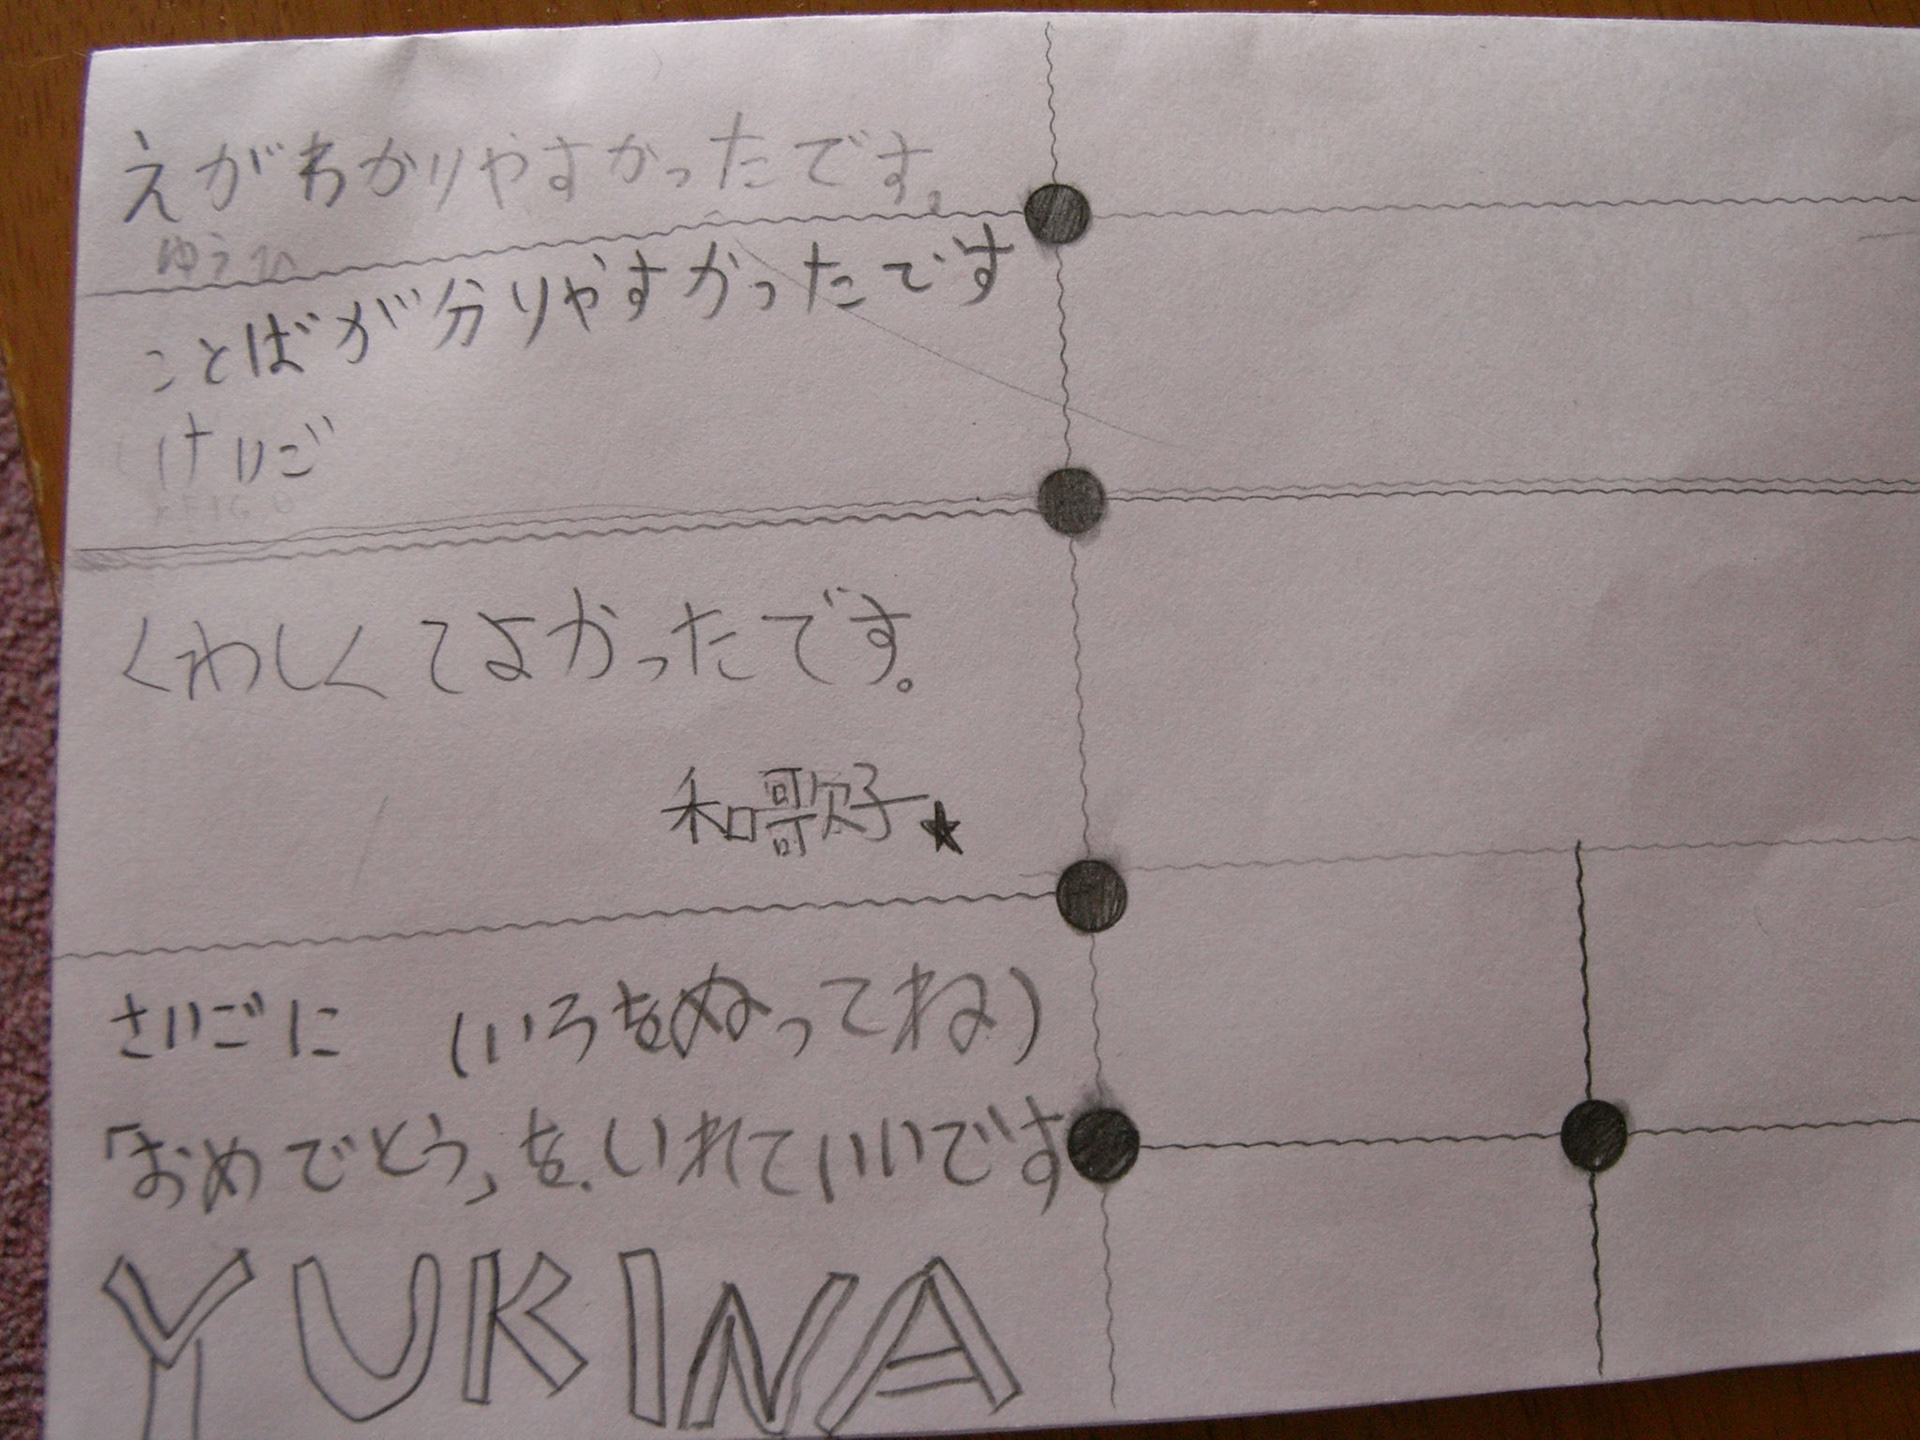 えがわかりやすかったです。
ゆうひ
ことばが分りやすかったです
けいご
KEIGO
くわしくてよかったです。
和歌子★
さいごに (いろをぬってね)
「おめでとう」を、いれていいです
YUKINA